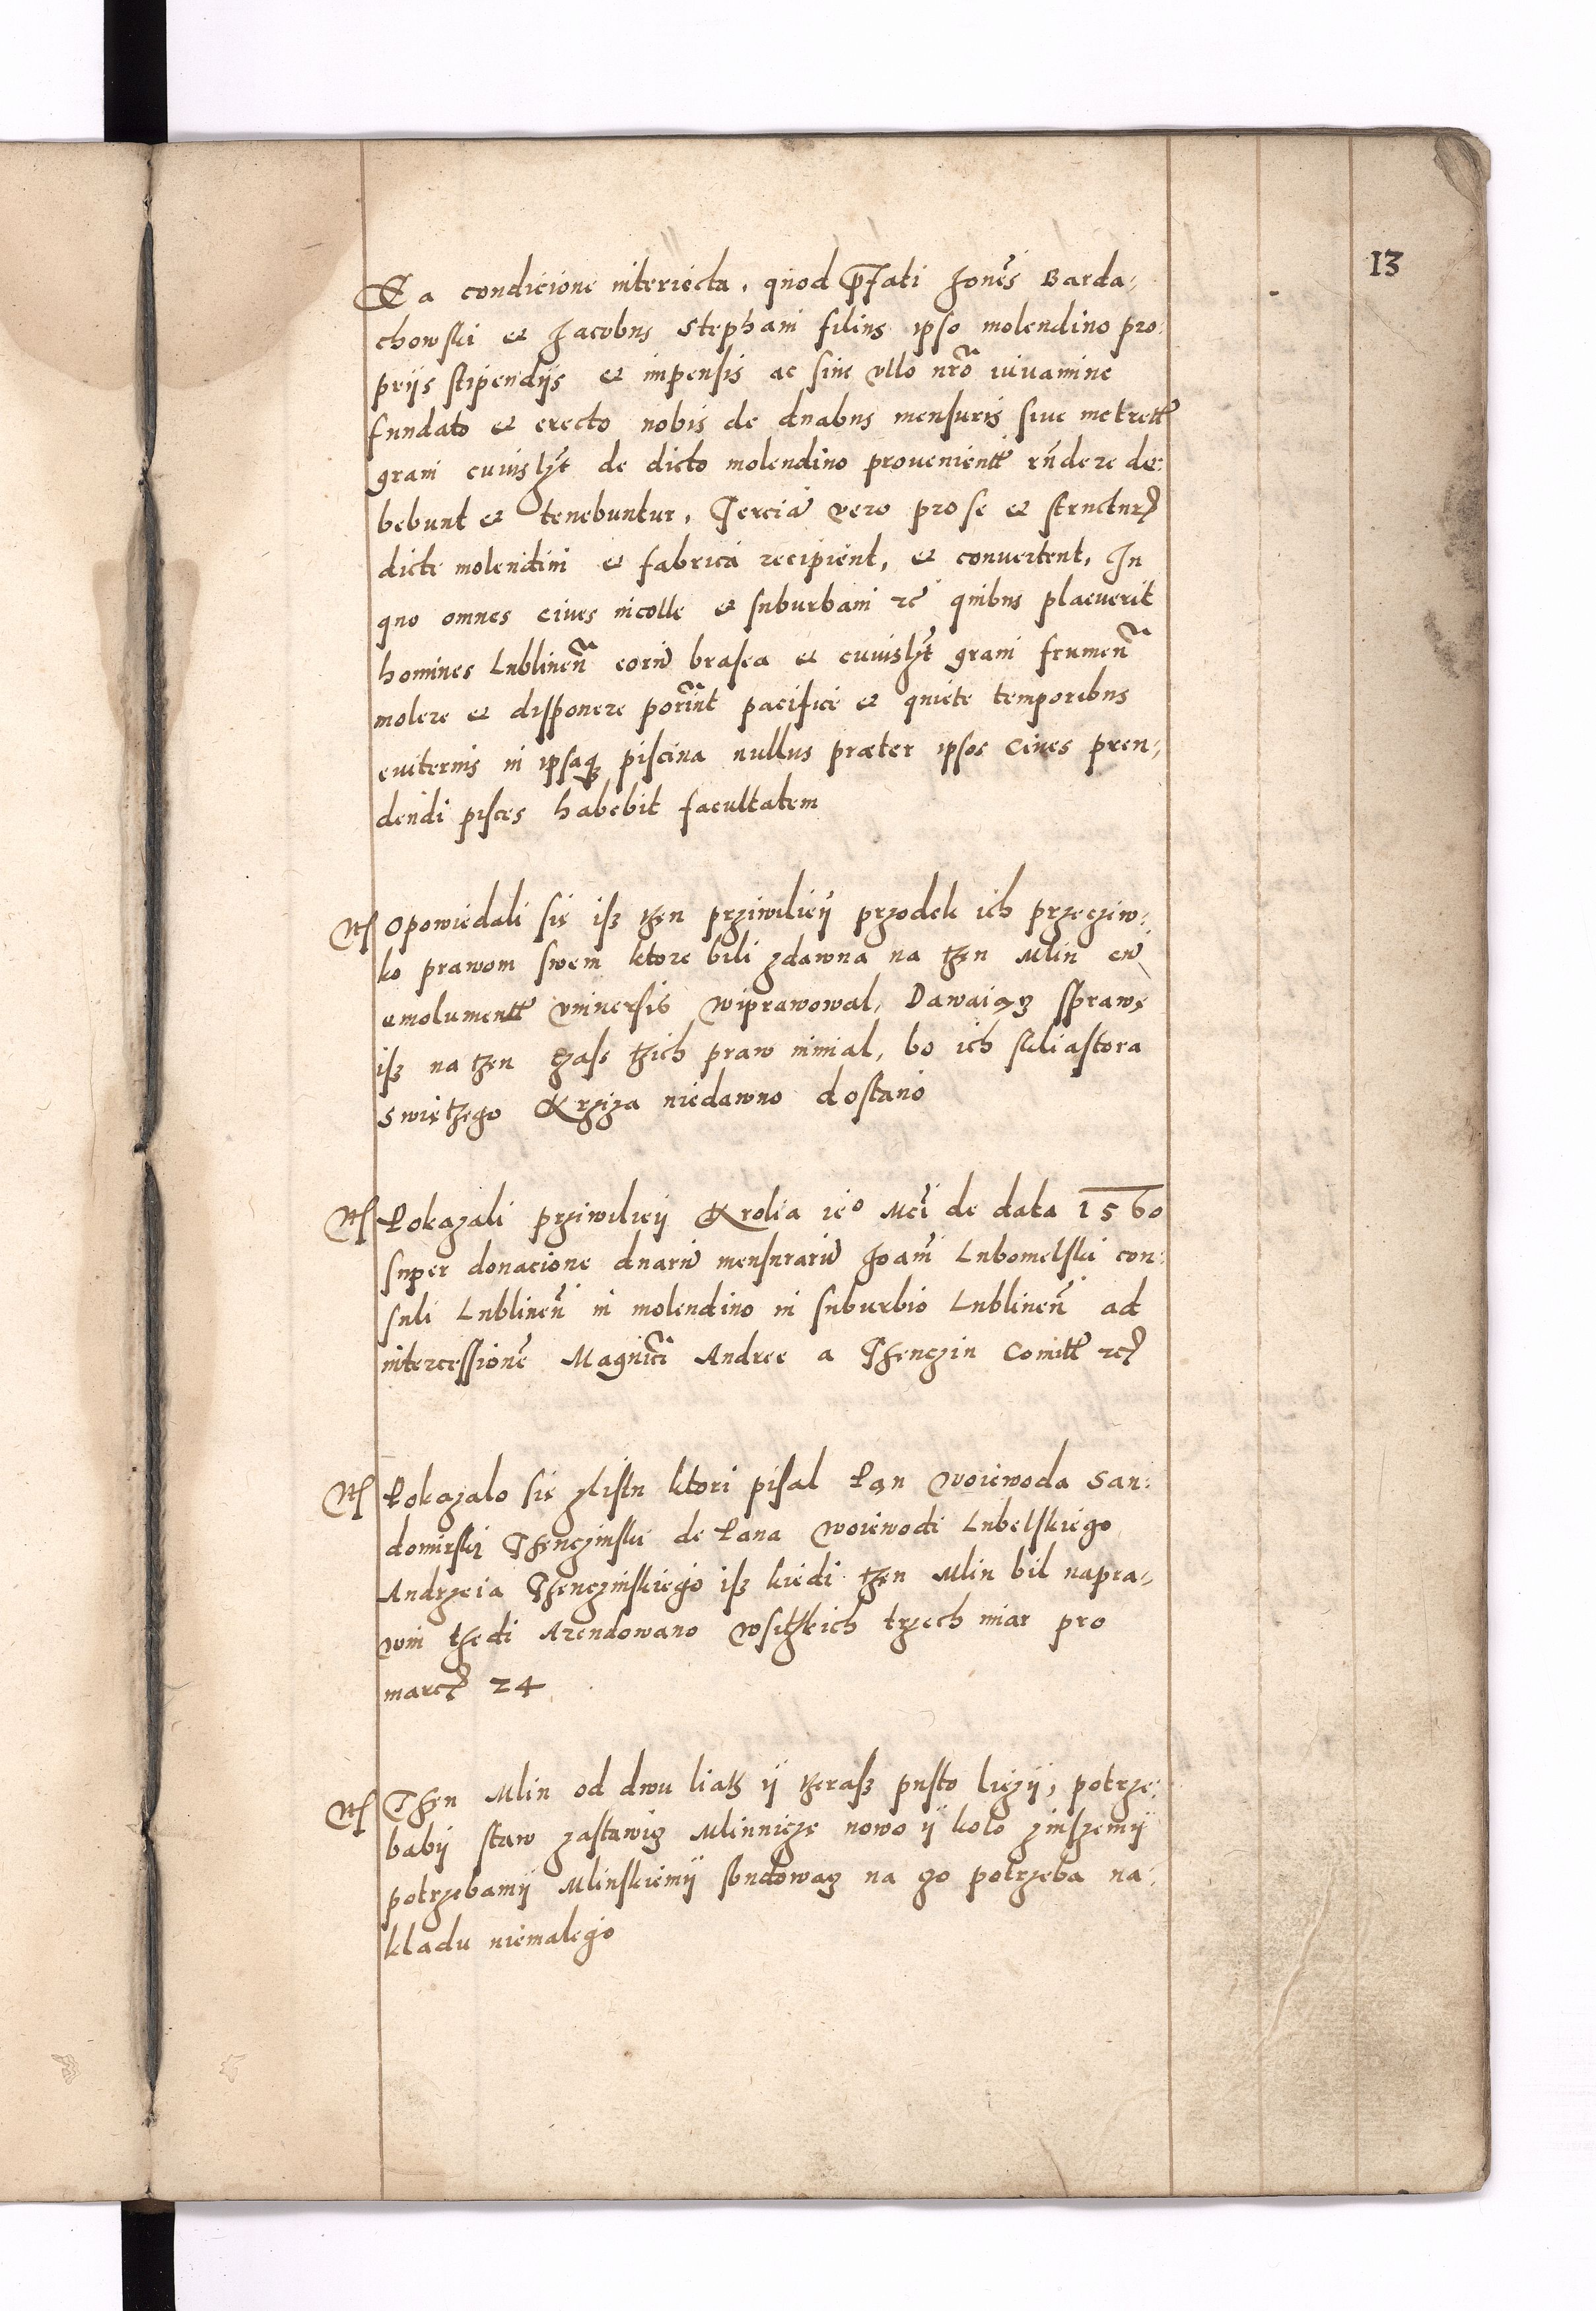 13
Ea condicione interiecta, quod p̄fati Joñes Barda-
chowski et Jacobus Stephani filius ipso molendino pro-
priis stipendijs et impensis ac sine vllo nrõ iuuamine
fundato et erecto nobis de duabus mensuris siue metrett
grani cuiuslibet de dicto molendino prouenientt rñdere de-
bebunt et tenebuntur, Tercia vero pro se et structur
dicte molendini et fabrica recipient, et conuertent, In
quo omnes ciues incolle et suburbani et quibus placuerit
homines Lublineñ eorū brasea et cuiuslibet grani frumeñ
molere et disponere poterint pacifice et quiete temporibus
euiternis in ipsaq piscina nullus præter ipsos Ciues pren-
dendi pisces habebit facultatem
Nt Opowiedali się isz then prziwilieÿ przodek ich przecziw-
ko prawom swem ktore bili zdawna na then Mlin cū
emolumentt vniuersis wiprawowal, Dawaiącz sprawę
isz na then czasz thich praw nimial, bo ich s kliastora
Swięthego Krziza niedawno dostano
Nt Pokazali prziwilieÿ Krolia ieº Mći de data 1560
super donacione duarū mensurarū Joañi Lubomelski con-
suli Lublineñ in molendino in suburbio Lublineñ ad
intercessionē Magnici Andree a Thenczin Comitt etc
Nt Pokazalo się zlistu ktori pisal Pan Woiewoda San-
domirskį Thenczinski de Pana Woiewodi Lubelskiego
Andrzeia Thenczinskiego isz kiedi then Mlin bil napra-
wni thedi Arendowano wsithkich trzech miar pro
marc 24
Nt Then Mlin od dwu liath ÿ theras pusto liezÿ, potrze-
babÿ staw zastawicz Mlinnicze nowo ÿ kolo zinszemÿ
potrzebamÿ Mlinskiemÿ sbudowacz na czo potrzeba na-
kladu niemalego